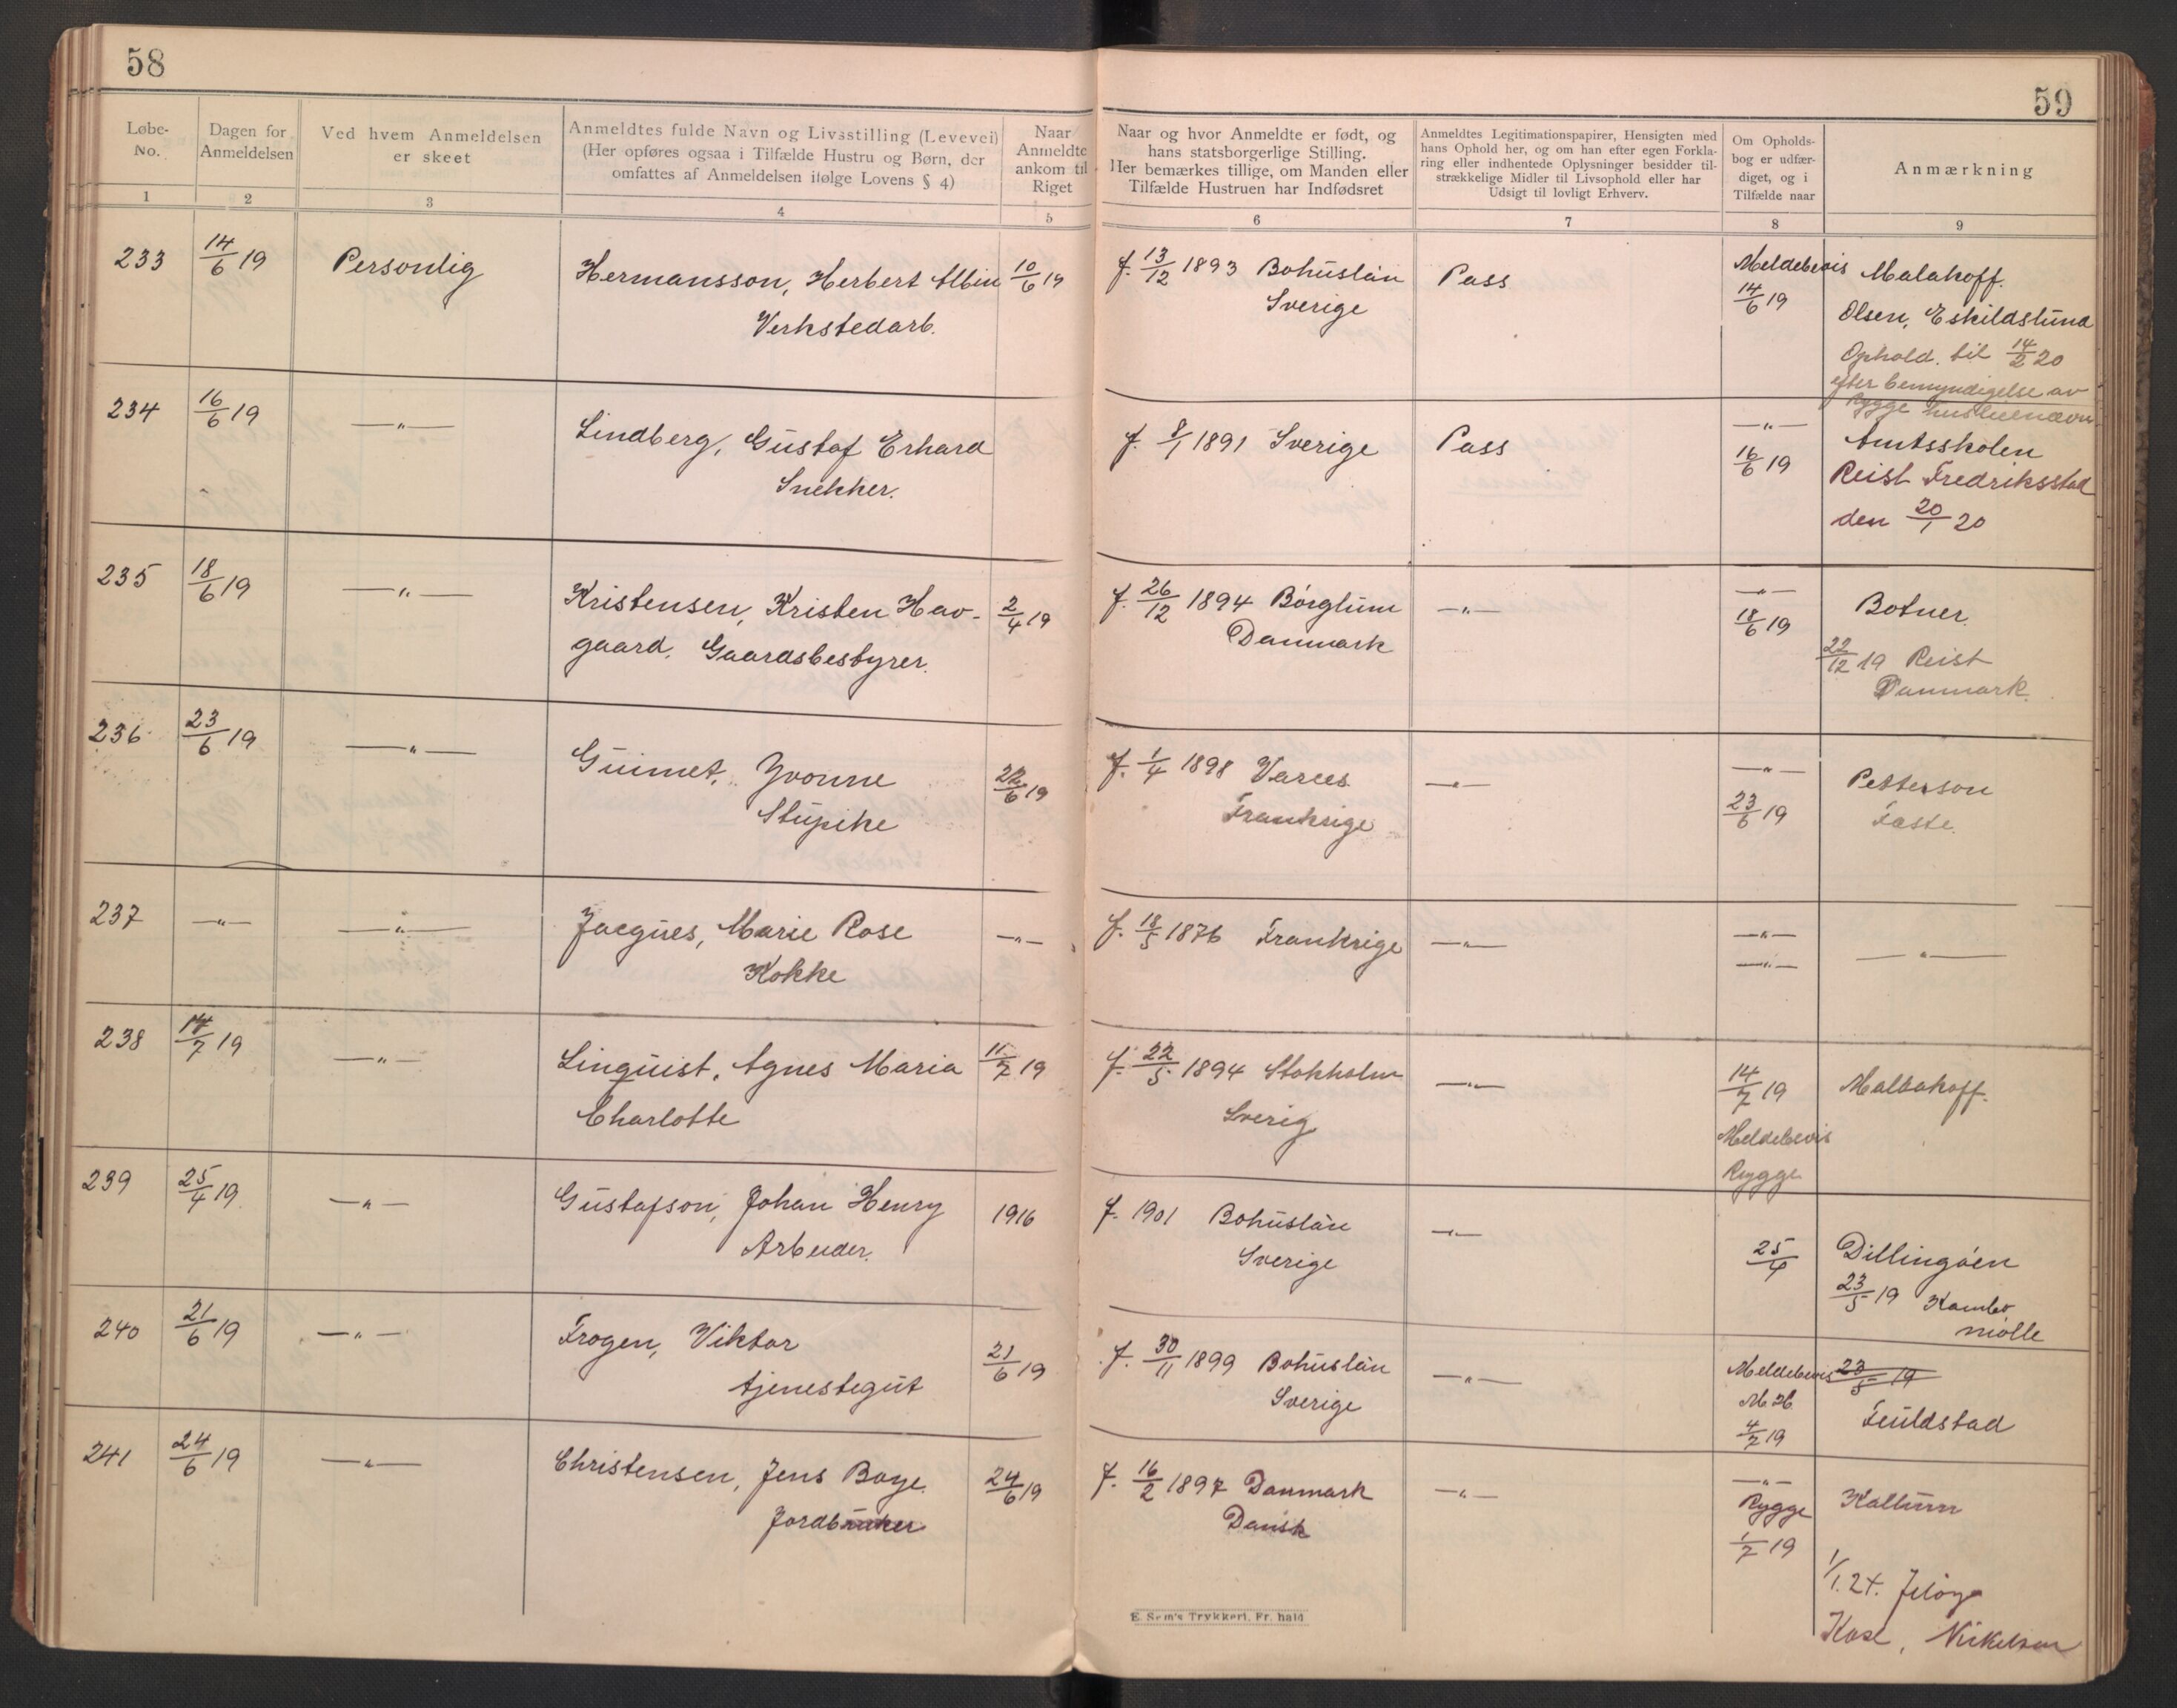 58
59
Løbe-
No.
Dagen for
Anmeldelsen
Ved hvem Anmeldelsen
er skeet
Anmeldtes fulde Navn og Livsstilling (Levevei)
(Her opføres ogsaa i Tilfælde Hustru og Børn, der
omfattes af Anmeldelsen ifølge Lovens § 4)
Naar
Anmeldte
ankom til
Riget
Naar og hvor Anmeldte er født, og
hans statsborgerlige Stilling.
Her bemærkes tillige, om Manden eller
Tilfælde Hustruen har Indfødsret
Anmeldtes Legitimationspapirer, Hensigten med
hans Ophold her, og om han efter egen Forkla-
ring eller indhentede Oplysninger besidder til-
strækkelige Midler til Livsophold eller har
Udsigt til lovligt Erhverv.
Om Opholds-
bog er udfær-
diget, og i
Tilfælde naar
Anmærkning
1 2 3 4 5 6 7 8 9
233 14/6 19 Personlig Hermansson, Herbert Albin 10/6 19 f. 13/12 1893 Bohuslän Pass Meldebevis Malakoff.
Verkstedarb. Sverige 14/6 19 Olsen, Eskildslund
Ophold. til 14/2 20
efter bemyndigelse av
Rygge husleienævn
234 16/6 19 —„— Lindberg, Gustaf Erhard f. 8/1 1891 Sverige Pass —„— Amtsskolen
Snekker. 16/6 19 Reist Fredriksstad
den 20/1 20
235 18/6 19 —„— Kristensen, Kristen Hav- 2/4 19 f. 26/12 1894 Børglum —„— —„— Botner.
gaard. Gaardsbestyrer. Danmark 18/6 19 22/12 19 Reist
Danmark.
236 23/6 19 —„— Guimet, Yvonne 22/6 19 f. 1/4 1898 Varces —„— —„— Petterson
Stupike Frankrige 23/6 19 Faste.
237 —„— —„— Jacques, Marie Rose —„— f. 18/5 1876 Frankrige —„— —„— —„—
Kokke —„—
238 14/7 19 —„— Linquist, Agnes Maria 11/7 19 f. 22/5 1894 Stokholm —„— 14/7 19 Mallakoff.
Charlotte Sverig Meldebevis
Rygge
239 25/4 19 —„— Gustafson, Johan Henry 1916 f. 1901 Bohuslän —„— 25/4 Dillingøen
Arbeider. Sverige 23/5 19 Kambo
mølle
240 21/6 19 —„— Frogen, Viktor 21/6 19 f. 30/11 1899 Bohuslän —„— Meldebevis 23/5 19
tjenestegut Sverige 4/7 19
241 24/6 19 —„— Christensen, Jens Boye. 24/6 19 f. 16/2 1897 Danmark —„— —„— Kallum
Jordbruker Dansk Rygge
1/7 19
1/1. 24. Jeløya
E. Sem's Trykkeri, Fr. hald